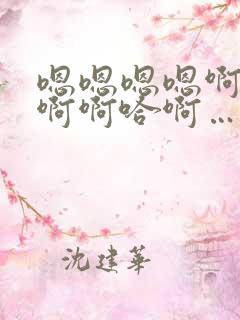 嗯嗯嗯嗯啊
啊啊哈啊…
沈建华